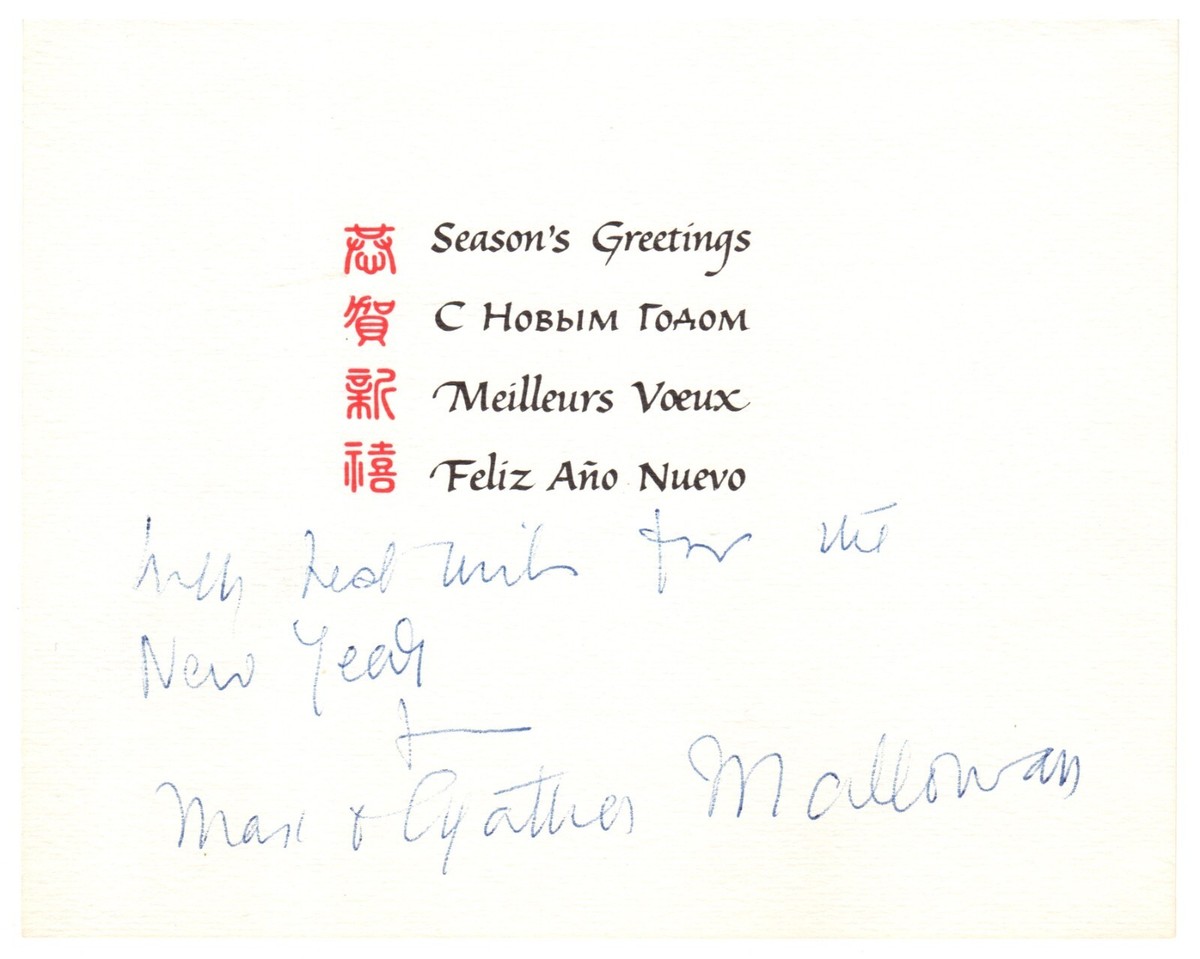 恭賀新禧
Season's Greetings
С Новым Годом
Meilleurs Vœux
Feliz Año Nuevo
With best wishes for the
New Year
from
Max + Agatha Mallowan